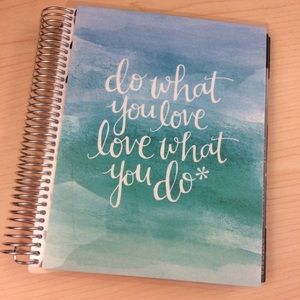 do what
you love
love what
you do*